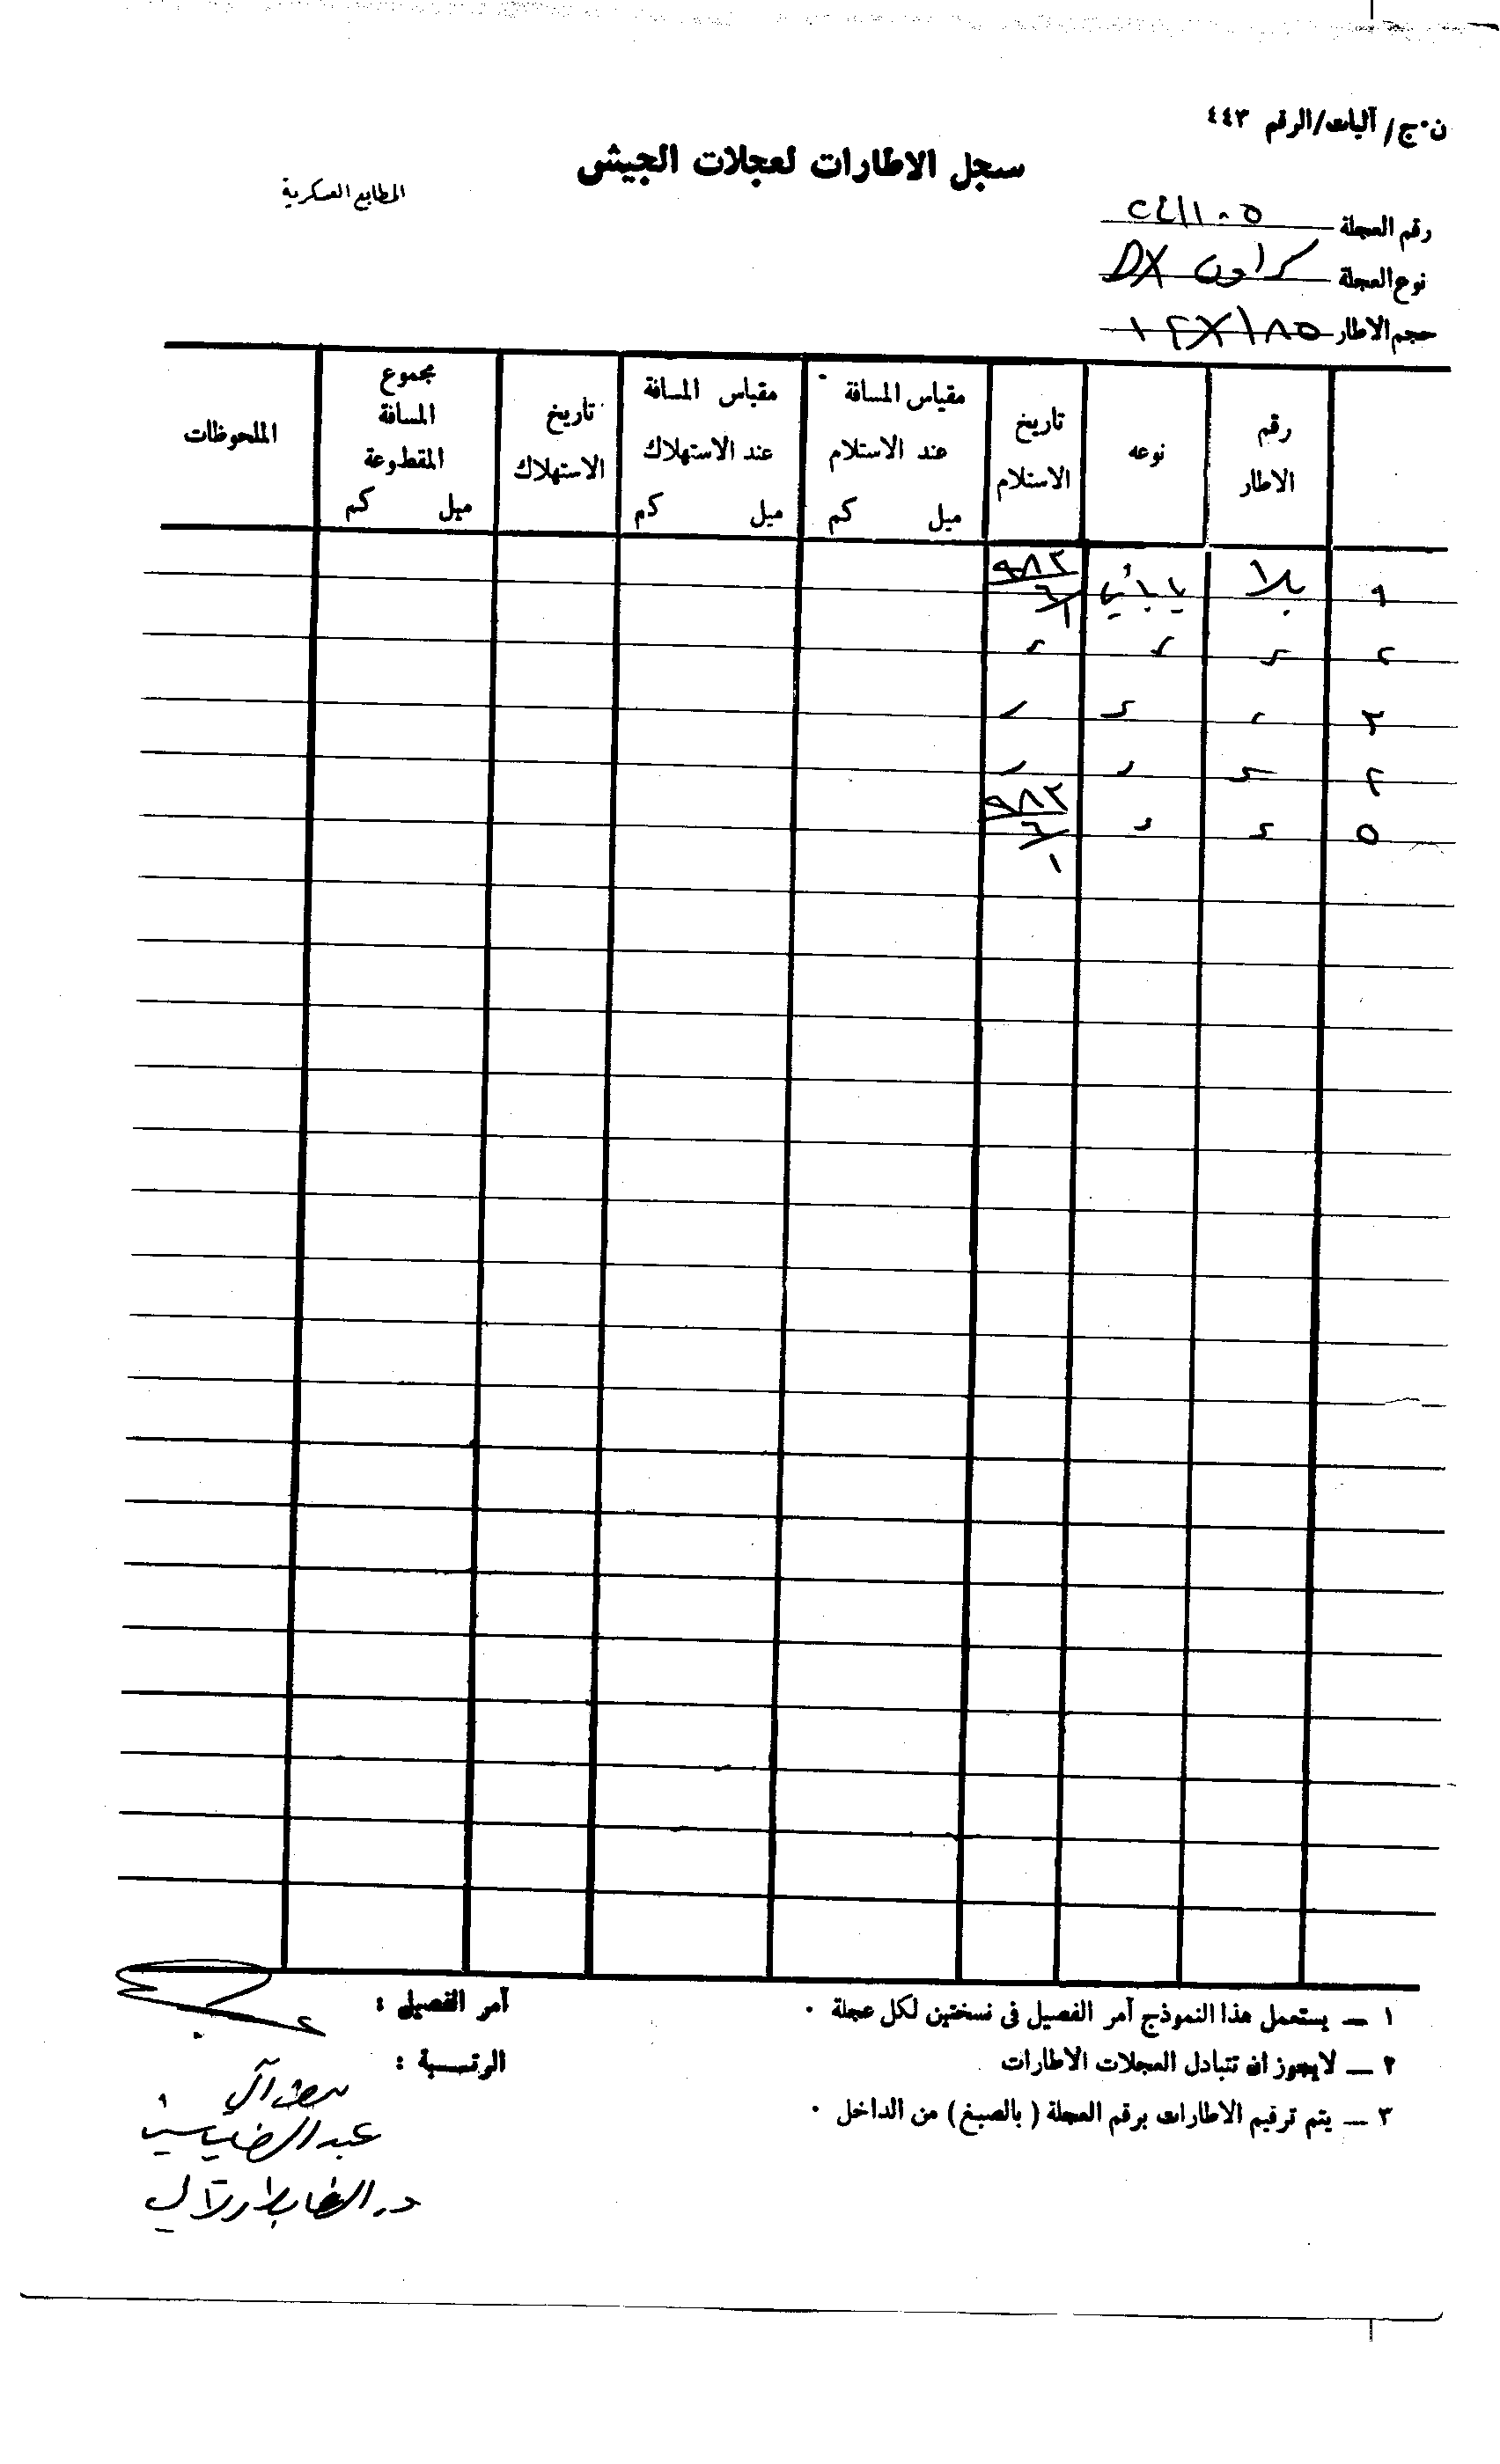 ن.ج/ آليات/الرقم ٤٤٣
سجل الاطارات لعجلات الجيش
المطابع العسكرية
رقم العجلة ٢٤١١٠٥
نوع العجلة كراون DX
حجم الاطار ١٨٥×١٢
رقم الاطار
نوعه
تاريخ الاستلام
مقياس المسافة عند الاستلام ميل كم
مقياس المسافة عند الاستهلاك ميل كم
تاريخ الاستهلاك
مجموع المسافة المقطوعة ميل كم
الملحوظات
١ بلا ياباني ٩٨٣/٦/١
٢ 〃 〃 〃
٣ 〃 〃 〃
٤ 〃 〃 〃
٥ 〃 〃 ٩٨٣/٦/١
١ — يستعمل هذا النموذج آمر الفصيل في نسختين لكل عجلة ٠
٢ — لايجوز ان تتبادل العجلات الاطارات
٣ — يتم ترقيم الاطارات برقم العجلة ( بالصبغ ) من الداخل ٠
آمر الفصيل :
الرتبة :
عبد الرضا